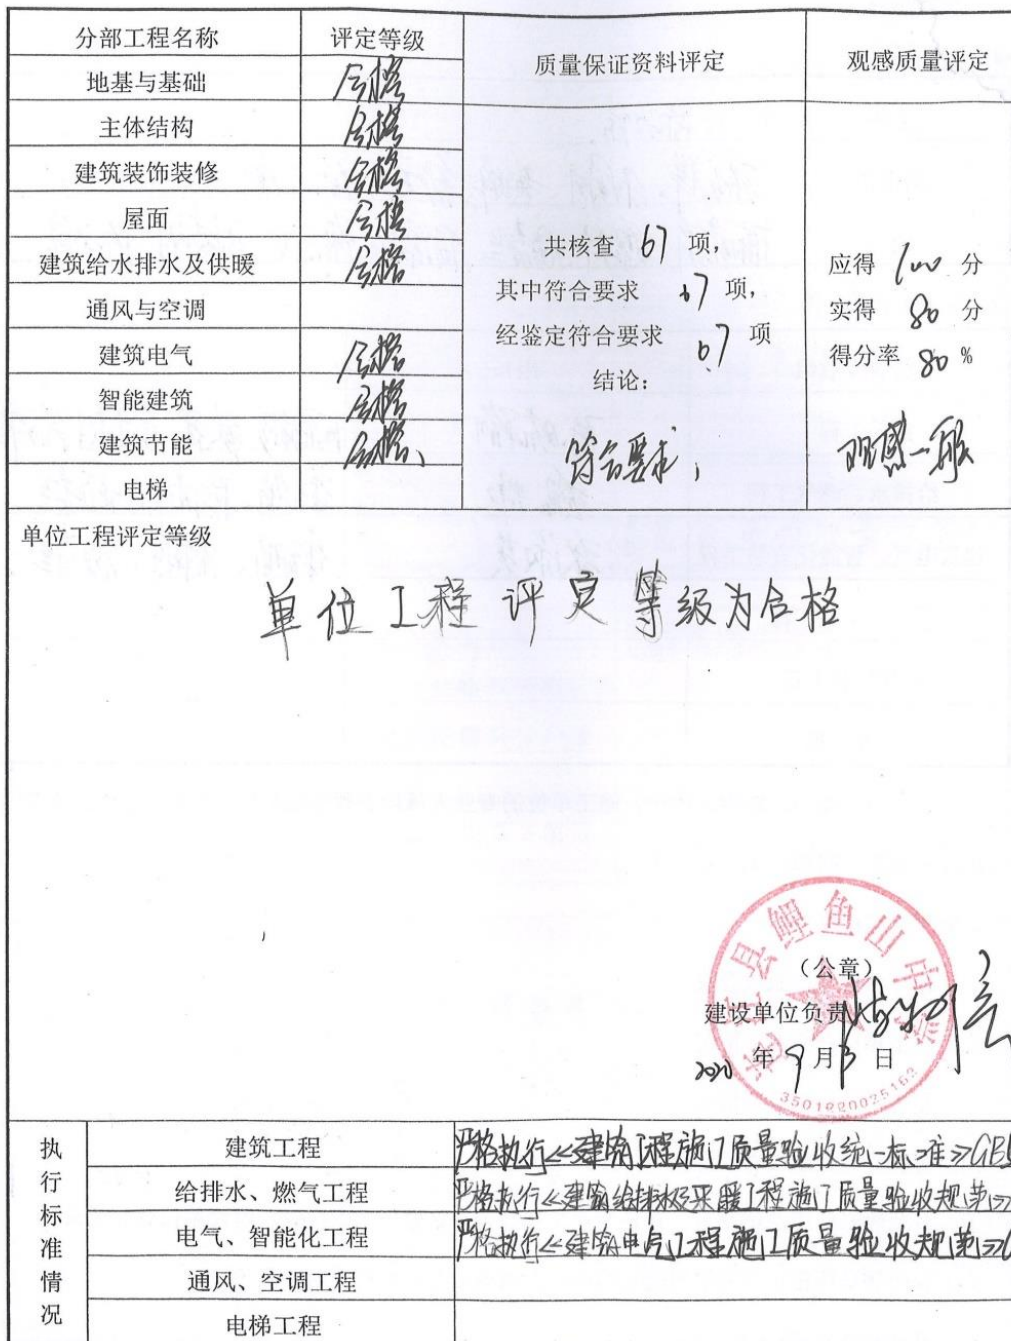 分部工程名称 评定等级 质量保证资料评定 观感质量评定
地基与基础 合格
主体结构 合格
建筑装饰装修 合格
屋面 合格
建筑给水排水及供暖 合格
通风与空调
建筑电气 合格
智能建筑 合格
建筑节能 合格、
电梯
共核查 67 项,
其中符合要求 67 项,
经鉴定符合要求 67 项
结论:
符合要求,
应得 100 分
实得 80 分
得分率 80 %
观感一般
单位工程评定等级
单位工程评定等级为合格
县鲤鱼山中学
(公章)
建设单位负责
2020 年 9 月 日
执行标准情况
建筑工程 严格执行<<建筑工程施工质量验收统一标准>>GB5
给排水、燃气工程 严格执行<<建筑给排水及采暖工程施工质量验收规范>>
电气、智能化工程 严格执行<<建筑电气工程施工质量验收规范>>G
通风、空调工程
电梯工程